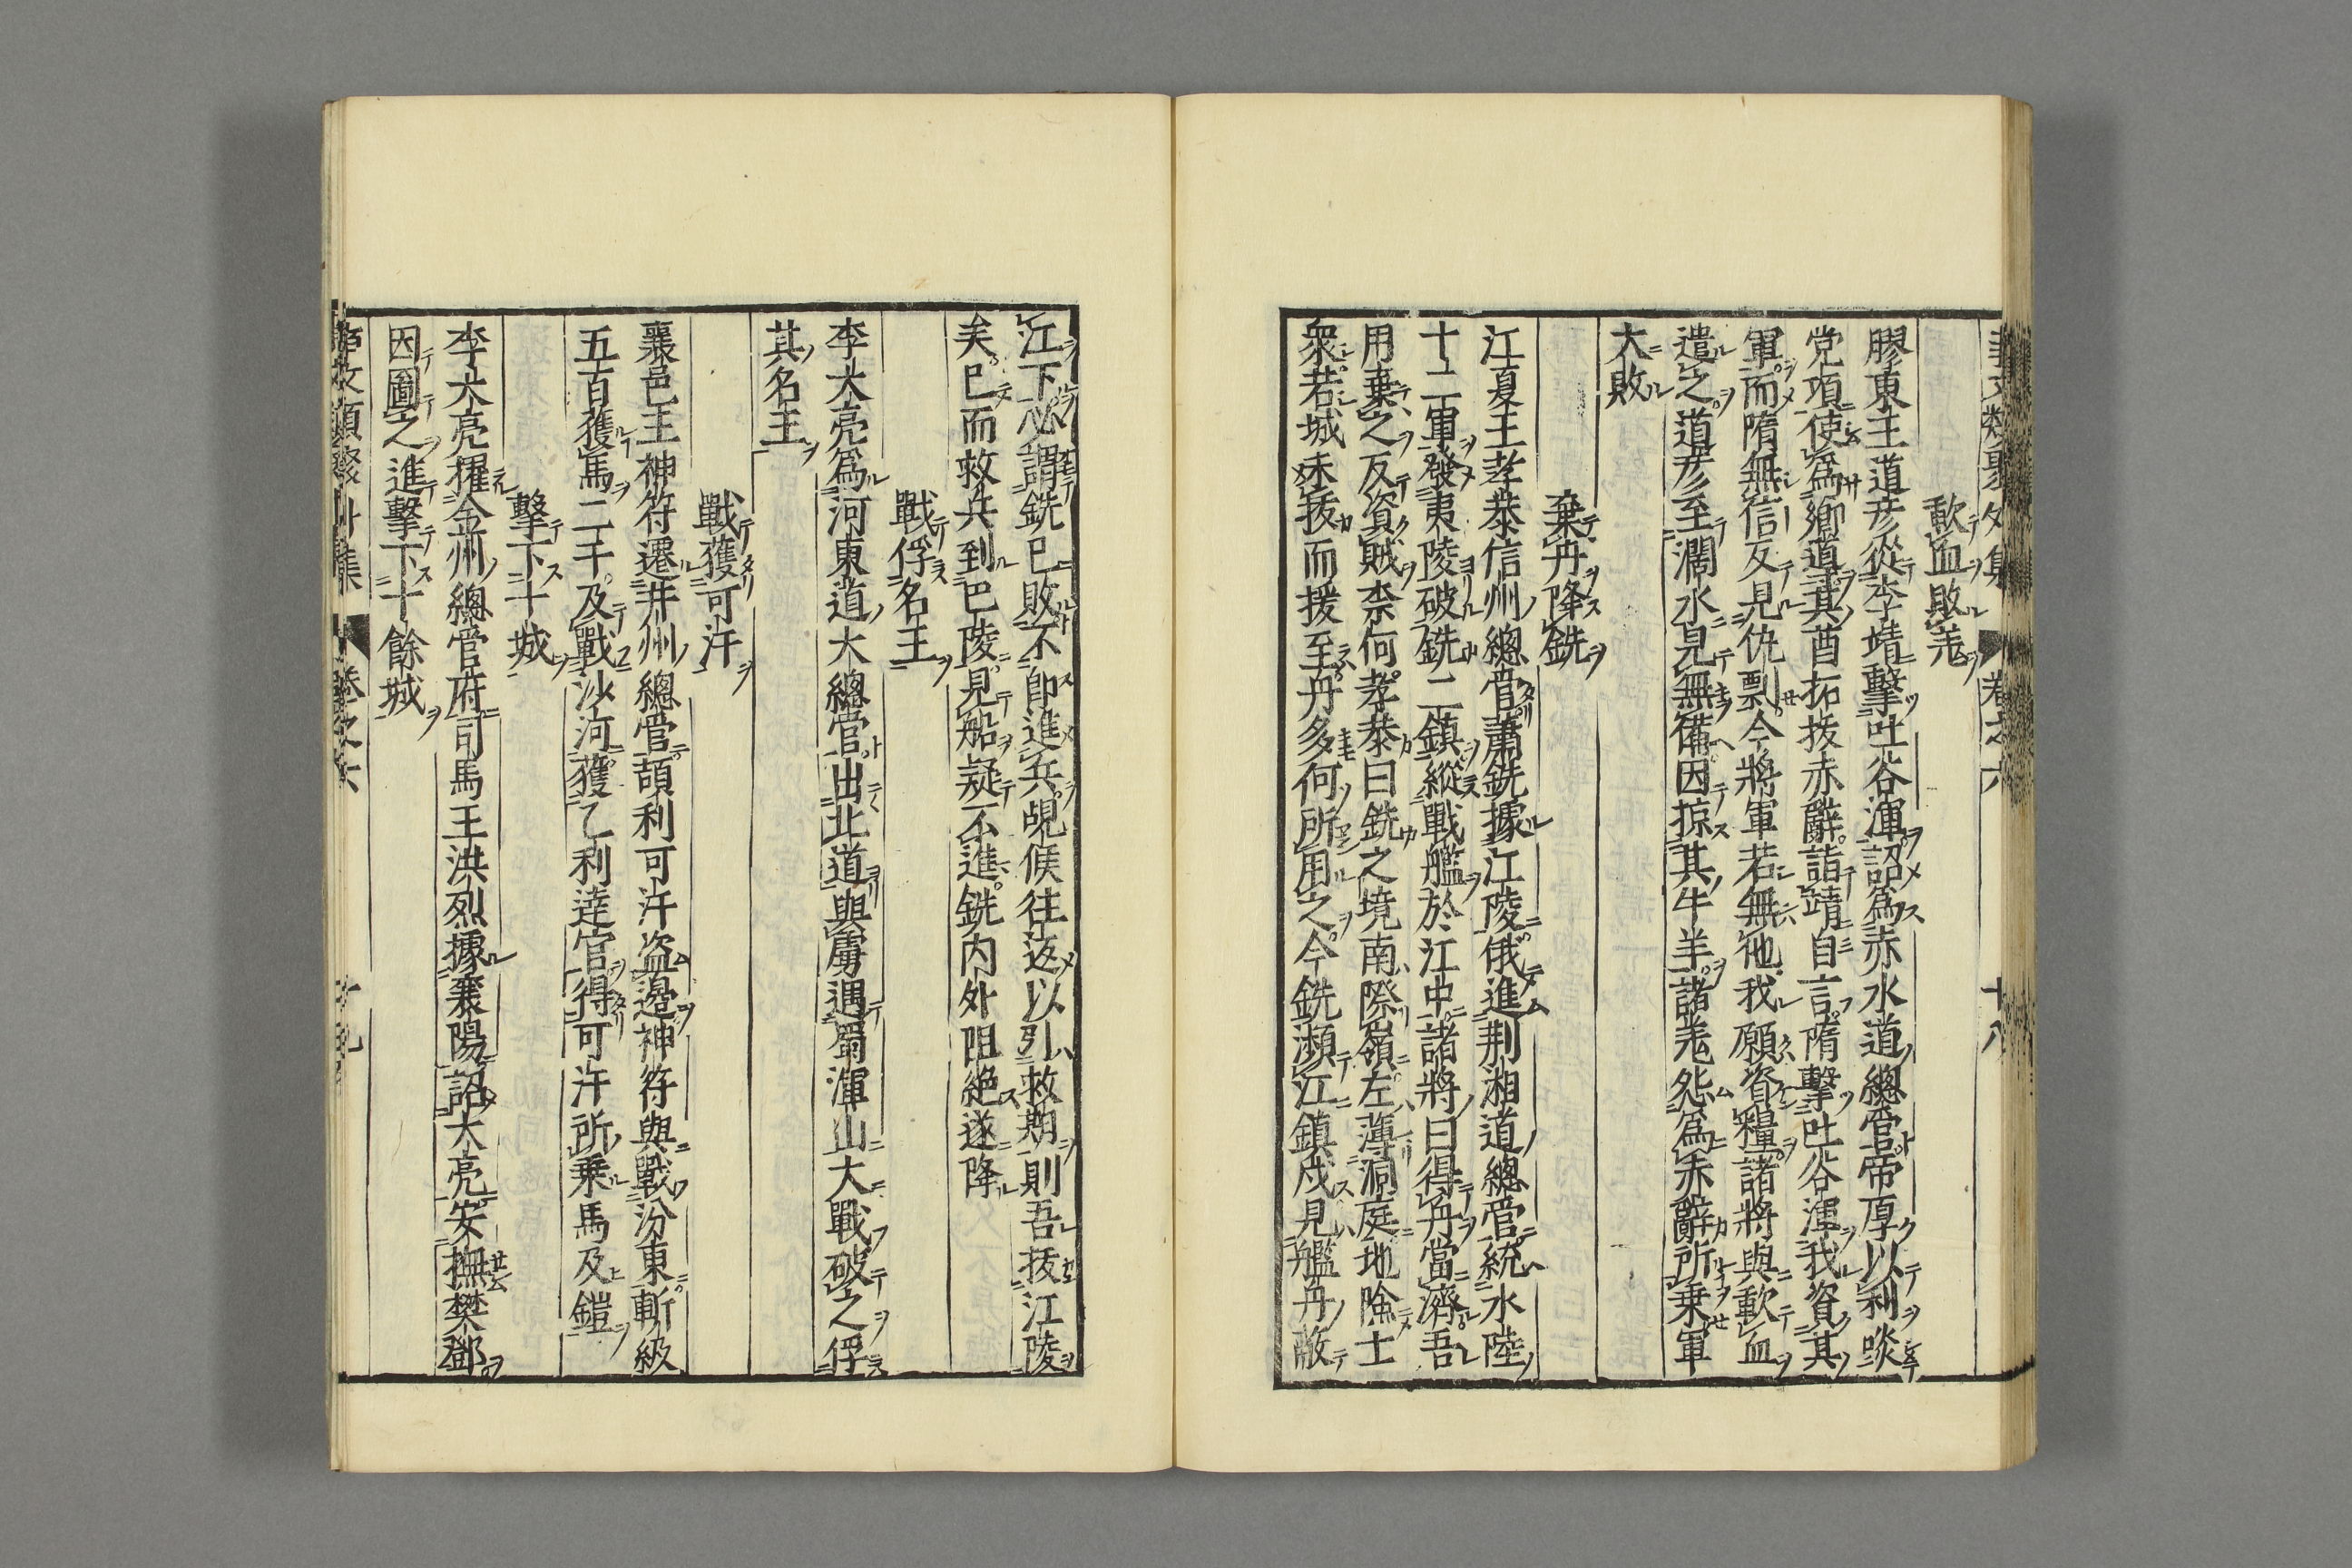 歃血敗羌
膠東王道彦從李靖擊吐谷渾詔爲赤水道總管帝厚以利啖
党項使爲鄉導其酋拓拔赤辭詣靖自言隋擊吐谷渾我資其
軍而隋無信反見仇剽今將軍若無他我願資糧諸將與歃血
遣之道彦至濶水見無備因掠其牛羊諸羌怨爲赤辭所乗軍
大敗
棄舟降銑
江夏王孝恭信州總管蕭銑據江陵俄進荆湘道總管統水陸
十二軍發夷陵破銑二鎮縱戰艦於江中諸將曰得舟當濟吾
用棄之反資賊柰何孝恭曰銑之境南際嶺左薄洞庭地險士
衆若城未拔而援至舟多何所用之今銑瀕江鎮戍見艦舟敝
江下必謂銑已敗不卽進兵覘候往返以引救期則吾拔江陵
矣已而救兵到巴陵見船疑不進銑内外阻絶遂降
戰俘名王
李大亮爲河東道大總管出北道與虜遇蜀渾山大戰破之俘
其名王
戰獲可汗
襄邑王神符遷并州總管頡利可汗盜邊神符與戰汾東斬級
五百獲馬二千及戰沙河獲乙利達官得可汗所乗馬及鎧
擊下十城
李大亮擢金州總管府司馬王洪烈據襄陽詔大亮安撫樊鄧
因圖之進擊下十餘城